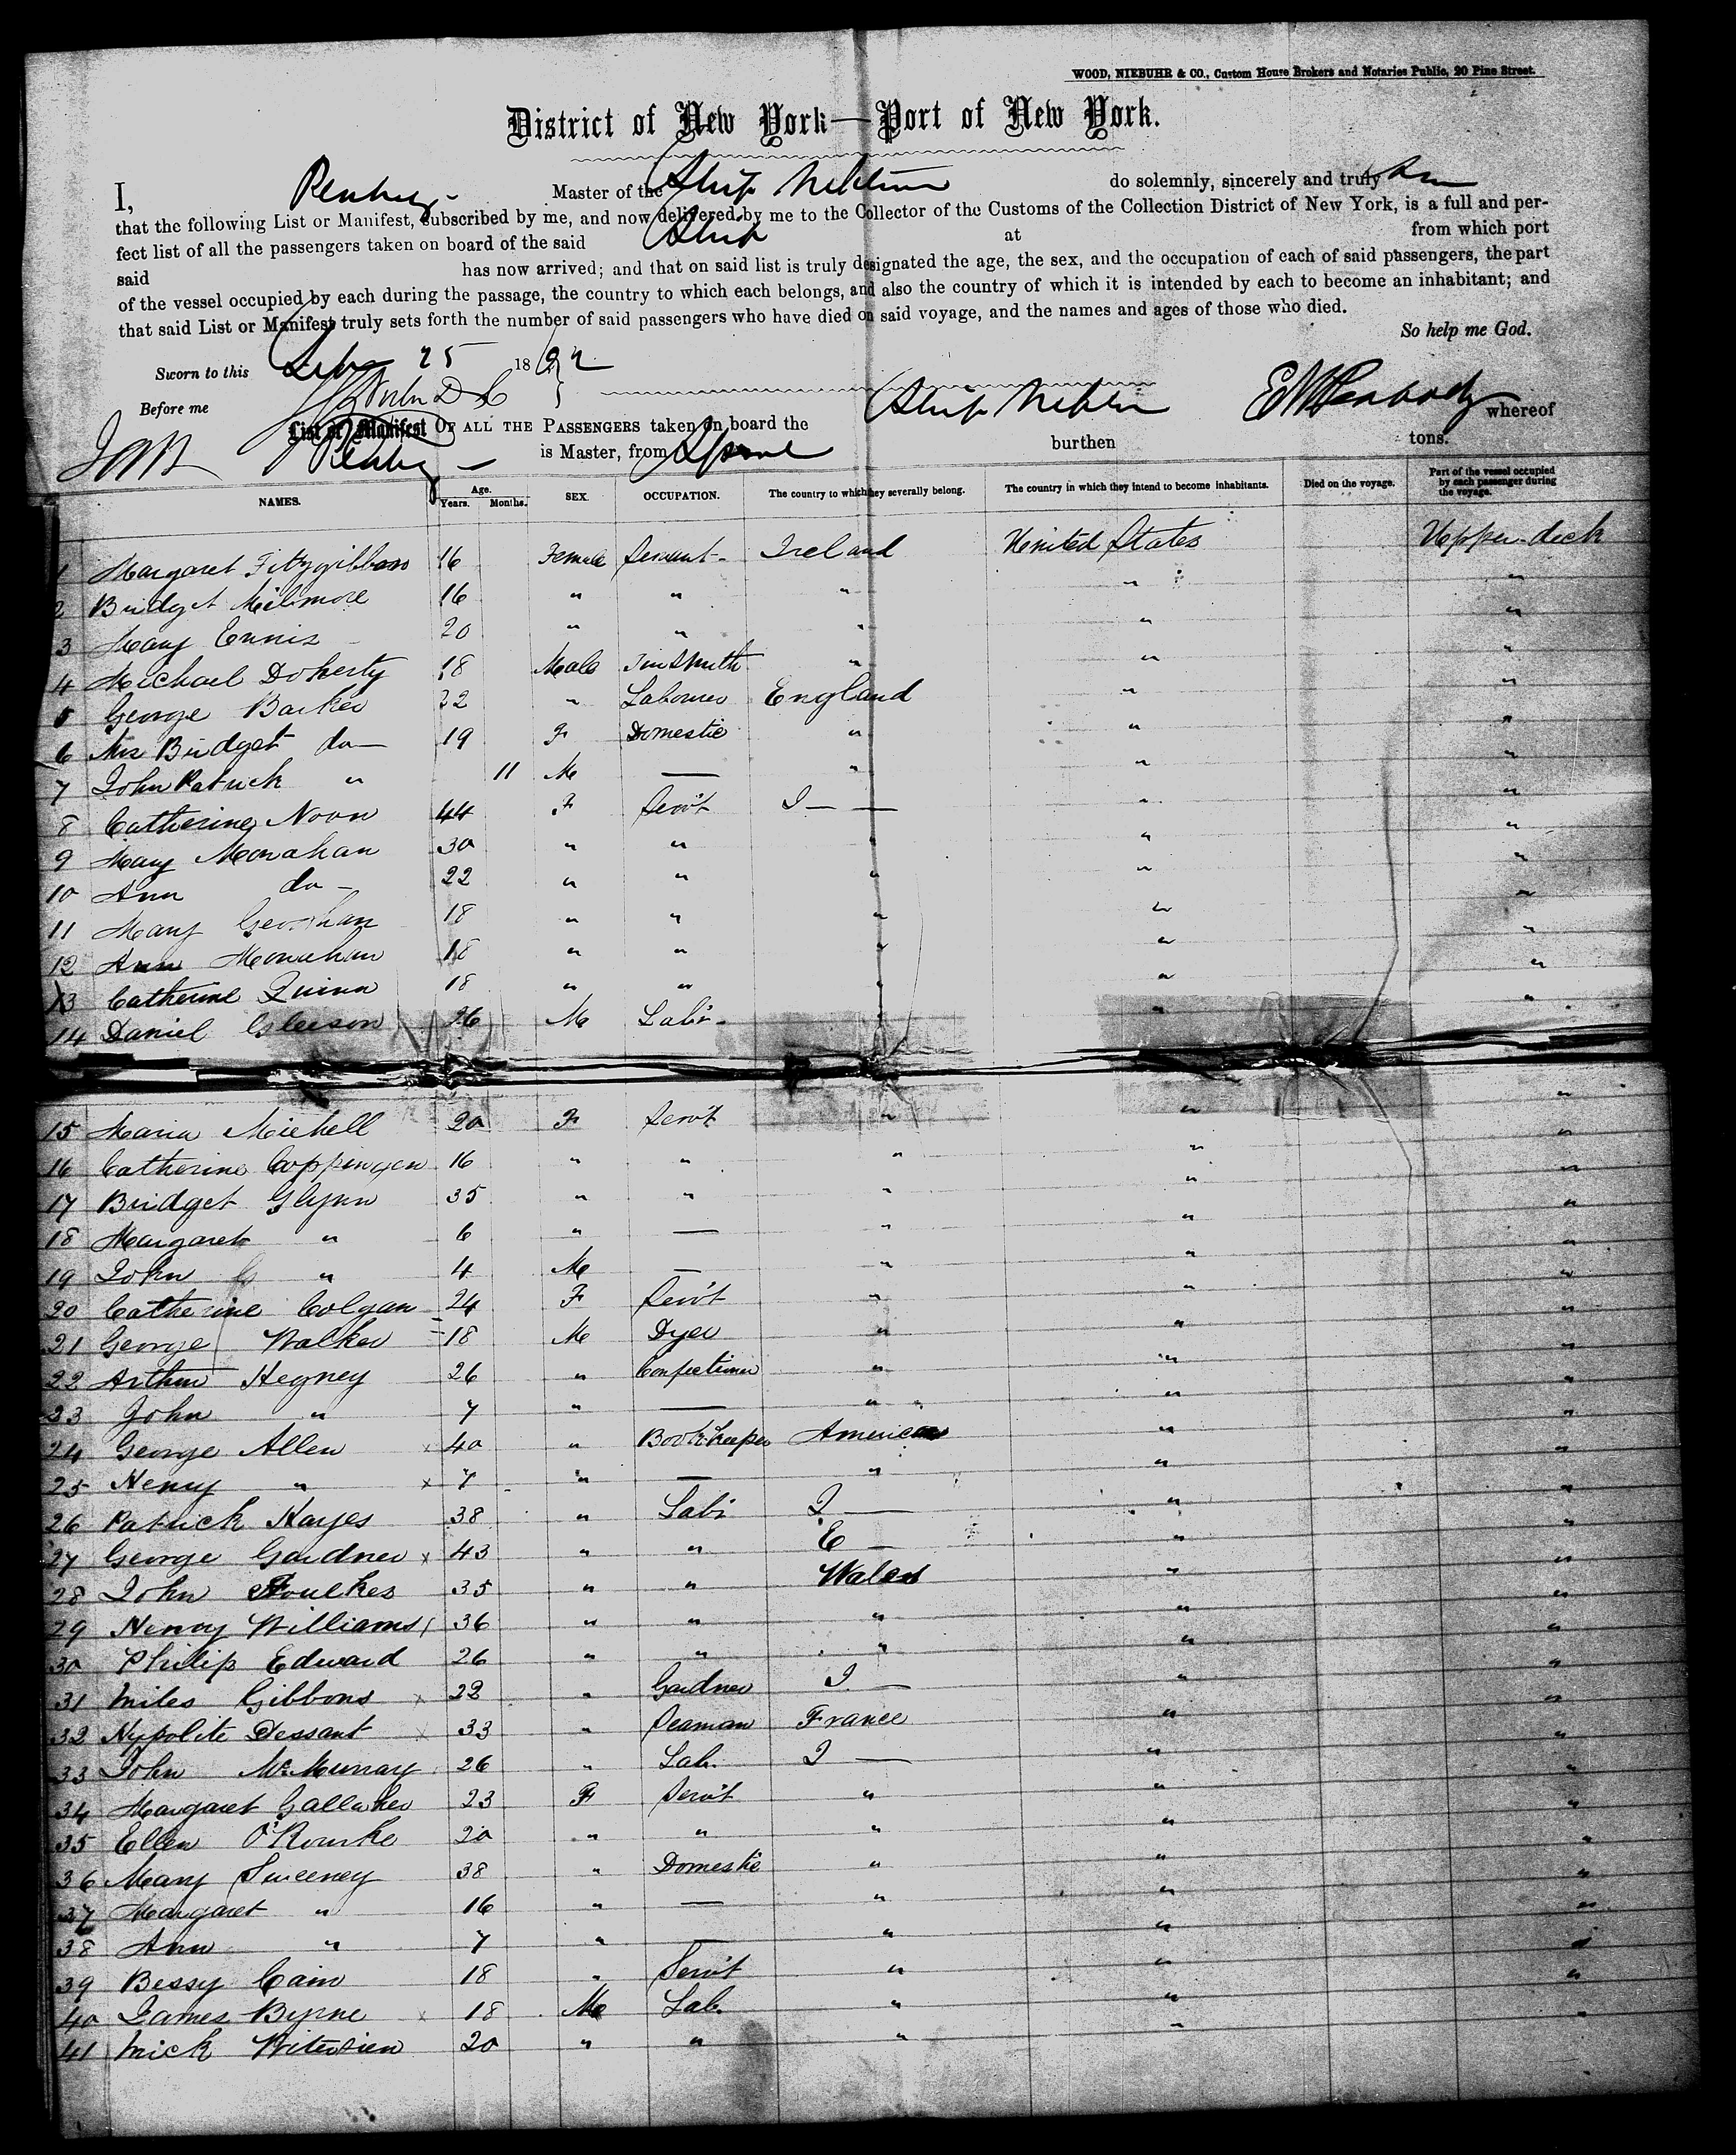 WOOD, NIEBUHR & CO., Custom House Brokers and Notaries Public, 20 Pine Street.
District of New York—Port of New York.
I, Master of the Ship do solemnly, sincerely and truly
that the following List or Manifest, subscribed by me, and now delivered by me to the Collector of the Customs of the Collection District of New York, is a full and per-
fect list of all the passengers taken on board of the said Ship at from which port
said has now arrived; and that on said list is truly designated the age, the sex, and the occupation of each of said passengers, the part
of the vessel occupied by each during the passage, the country to which each belongs, and also the country of which it is intended by each to become an inhabitant; and
that said List or Manifest truly sets forth the number of said passengers who have died on said voyage, and the names and ages of those who died.
So help me God.
Sworn to this 25 18
Before me
List or Manifest OF ALL THE PASSENGERS taken on board the Ship whereof
is Master, from burthen tons.
NAMES. Age. Years. Months. SEX. OCCUPATION. The country to which they severally belong. The country in which they intend to become inhabitants. Died on the voyage. Part of the vessel occupied by each passenger during the voyage.
1 Margaret Fitzgibbon 16 Female Servant Ireland United States Upper deck
2 Bridget 16 " " " " "
3 Mary Ennis 20 " " " " "
4 Michael Doherty 18 Male Tinsmith " " "
5 George Barker " Labourer England " "
6 Mrs Bridget do 19 F Domestic " " "
7 John Patrick " 11 M — " " "
8 Catherine Noon 44 F Serv't I — " "
9 Mary Monahan 30 " " " " "
10 Ann do 22 " " " " "
11 Mary 18 " " " " "
12 Ann Monahan 18 " " " " "
13 Catherine Quinn 18 " " " " "
14 Daniel Gleeson 26 M Lab'r " "
15 Maria Michell 20 F Serv't " " "
16 Catherine Coppinger 16 " " " " "
17 Bridget Glynn 35 " " " " "
18 Margaret " 6 " — " " "
19 John " 4 M — " " "
20 Catherine Colgan 24 F Serv't " " "
21 George Walker 18 M Dyer " " "
22 Arthur Hegney 26 " Confectioner " " "
23 John " 7 " — " " "
24 George Allen x 40 " Book-keeper America " "
25 Henry " x 7 " — " " "
26 Patrick Hayes 38 " Lab'r I — " "
27 George Gardner x 43 " " E — " "
28 John Foulkes 35 " " Wales " "
29 Henry Williams 36 " " " " "
30 Philip Edward 26 " " " " "
31 Miles Gibbons x " Gardner I — " "
32 Hypolite Dessant x 33 " Seaman France " "
33 John McMurray 26 " Lab. I — " "
34 Margaret Gallaher 23 F Serv't " " "
35 Ellen O'Rourke 20 " " " " "
36 Mary Sweeney 38 " Domestic " " "
37 Margaret " 16 " — " " "
38 Ann " 7 " — " " "
39 Bessy Cain 18 " Serv't " " "
40 James Byrne x 18 M Lab. " " "
41 Mick 20 " " " " "